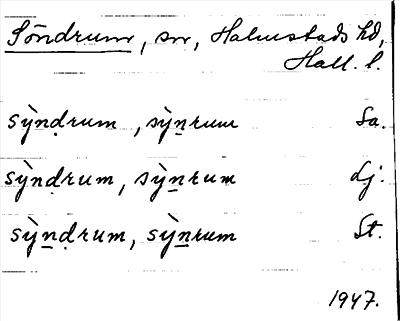 Söndrum, sn, Halmstads hd,
Hall. l.
sỳṉḍrum, sỳṉrum Sa.
sỳnḍrum, sỳṉrum Lj.
sỳṉḍrum, sỳṉrum St.
1947.